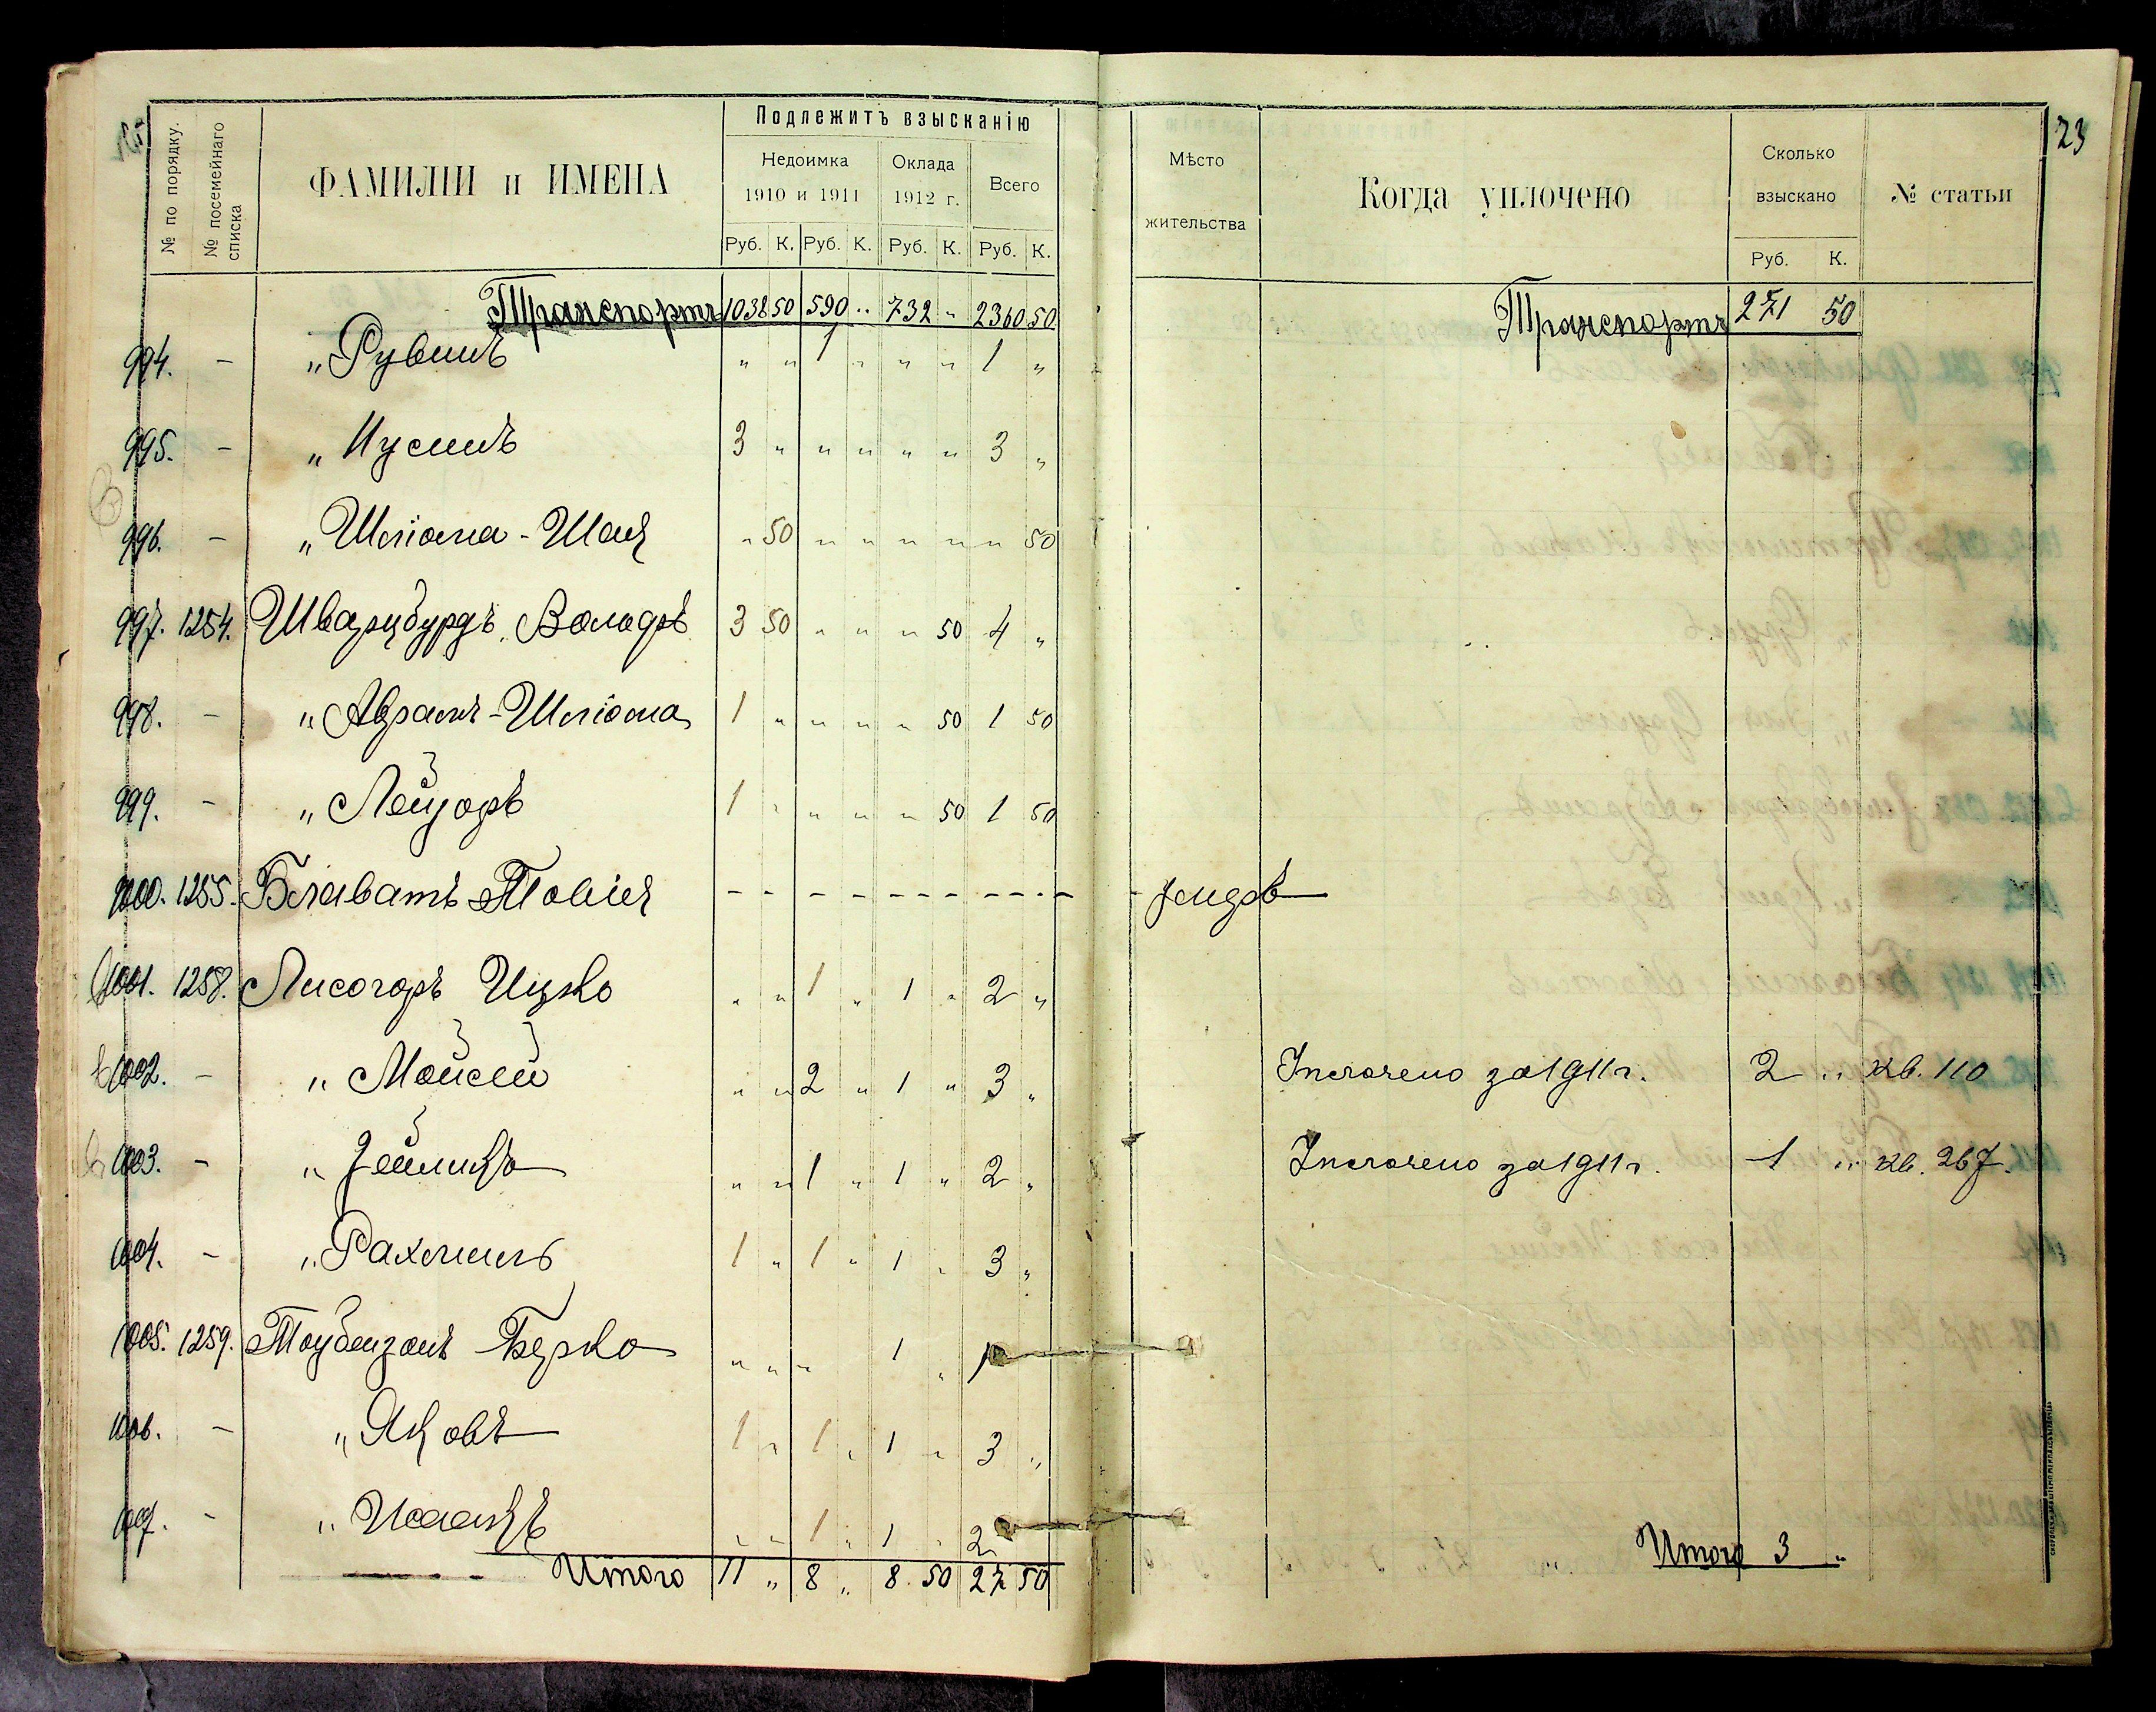 23
№ по порядку.
№ посемейнаго списка
ФАМИЛІИ и ИМЕНА
Подлежитъ взысканію
Недоимка 1910 и 1911
Оклада 1912 г.
Всего
Руб. К. Руб. К. Руб. К. Руб. К.
Мѣсто жительства
Когда уплочено
Сколько взыскано
Руб. К.
№ статьи
Транспортъ 1038 50 590 „ 732 „ 2360 50 Транспортъ 271 50
994. - „ Рувинъ „ „ 1 „ „ „ 1 „
995. - „ Нусинъ 3 „ „ „ „ „ 3 „
996. - „ Шліома-Шая „ 50 „ „ „ „ „ 50
997. 1254. Шварцбурдъ Вольфъ 3 50 „ „ „ 50 4 „
998. - „ Аврамъ-Шліома 1 „ „ „ „ 50 1 50
999. - „ Лейзоръ 1 „ „ „ „ 50 1 50
1000. 1255. Блаватъ Товія - - - - - - - -
1001. 1258. Лисогоръ Ицко „ „ 1 „ 1 „ 2 „
1002. - „ Мойсей „ „ 2 „ 1 „ 3 „ за 1911 г. 2 „ кв. 110
1003. - „ Зейликъ „ „ 1 „ 1 „ 2 „ за 1911 г. 1 „ кв. 267.
1004. - „ Рахмиль 1 „ 1 „ 1 „ 3 „
1005. 1259. Таубензонъ Берко „ „ „ 1 „ 1
1006. - „ Яковъ 1 „ 1 „ 1 „ 3 „
1007. - „ Исаакъ „ „ 1 „ 1 „ 2
Итого 11 „ 8 „ 8 50 27 50 Итого 3 „